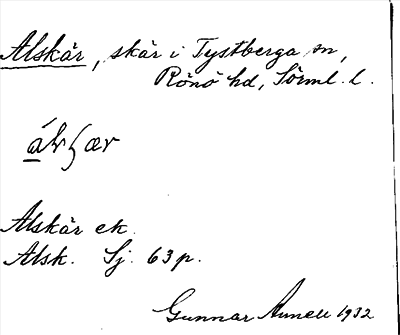 Alskär, skär i Tystberga sn,
Rönö hd, Sörml. l.
Alskär ek.
Alsk. Sj. 63 p.
Gunnar Arnell 1932